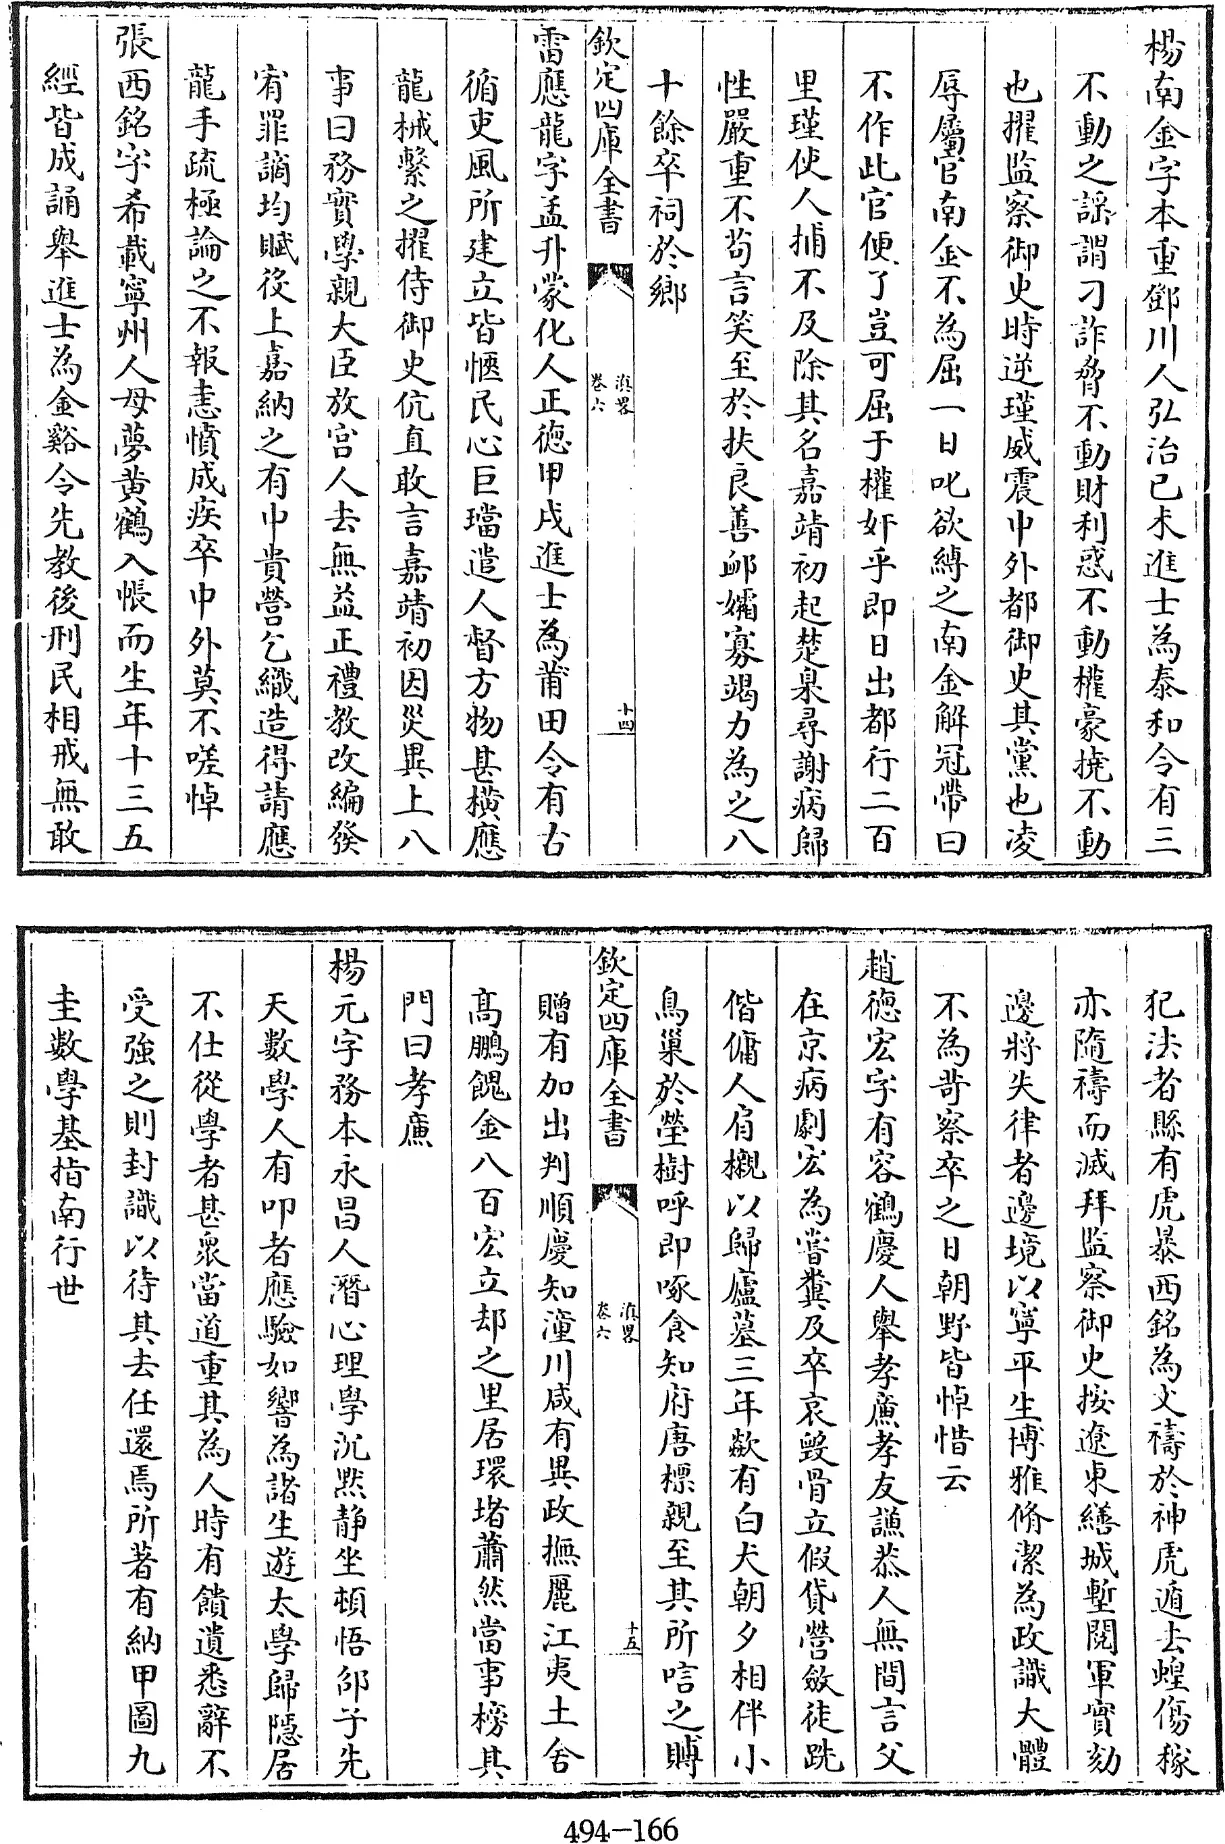 楊南金字本重鄧川人弘治己未進士為泰和令有三
不動之謡謂刁詐脅不動財利惑不動權豪撓不動
也擢監察御史時逆瑾威震中外都御史其黨也凌
辱屬官南金不為屈一日叱欲縛之南金解冠帶曰
不作此官便了豈可屈于權奸乎即日出都行二百
里瑾使人捕不及除其名嘉靖初起楚臬尋謝病歸
性嚴重不苟言笑至於扶良善䘏孀寡竭力為之八
十餘卒祠於鄉
欽定四庫全書
滇畧
卷六
十四
雷應龍字孟升蒙化人正德甲戌進士為莆田令有古
循吏風所建立皆愜民心巨璫遣人督方物甚橫應
龍械繫之擢侍御史伉直敢言嘉靖初因災異上八
事曰務實學親大臣放宮人去無益正禮教改編發
宥罪謫均賦役上嘉納之有中貴營乞織造得請應
龍手疏極論之不報恚憤成疾卒中外莫不嗟悼
張西銘字希載寧州人母夢黄鶴入帳而生年十三五
經皆成誦舉進士為金谿令先教後刑民相戒無敢
犯法者縣有虎暴西銘為文禱於神虎遁去蝗傷稼
亦隨禱而滅拜監察御史按遼東繕城塹閱軍實劾
邊將失律者邊境以寧平生博雅脩潔為政識大體
不為苛察卒之日朝野皆悼惜云
趙德宏字有容鶴慶人舉孝廉孝友謙恭人無間言父
在京病劇宏為嘗糞及卒哀毀骨立假貸營斂徒跣
偕傭人肩櫬以歸廬墓三年歘有白犬朝夕相伴小
鳥巢於塋樹呼即啄食知府唐標親至其所唁之賻
欽定四庫全書
滇畧
卷六
十五
贈有加出判順慶知潼川咸有異政撫麗江夷土舍
高鵬餽金八百宏立却之里居環堵蕭然當事榜其
門曰孝廉
楊元字務本永昌人潛心理學沉默静坐頓悟邵子先
天數學人有叩者應驗如響為諸生遊太學歸隱居
不仕從學者甚衆當道重其為人時有饋遺悉辭不
受強之則封識以待其去任還焉所著有納甲圖九
圭數學基指南行世
494-166